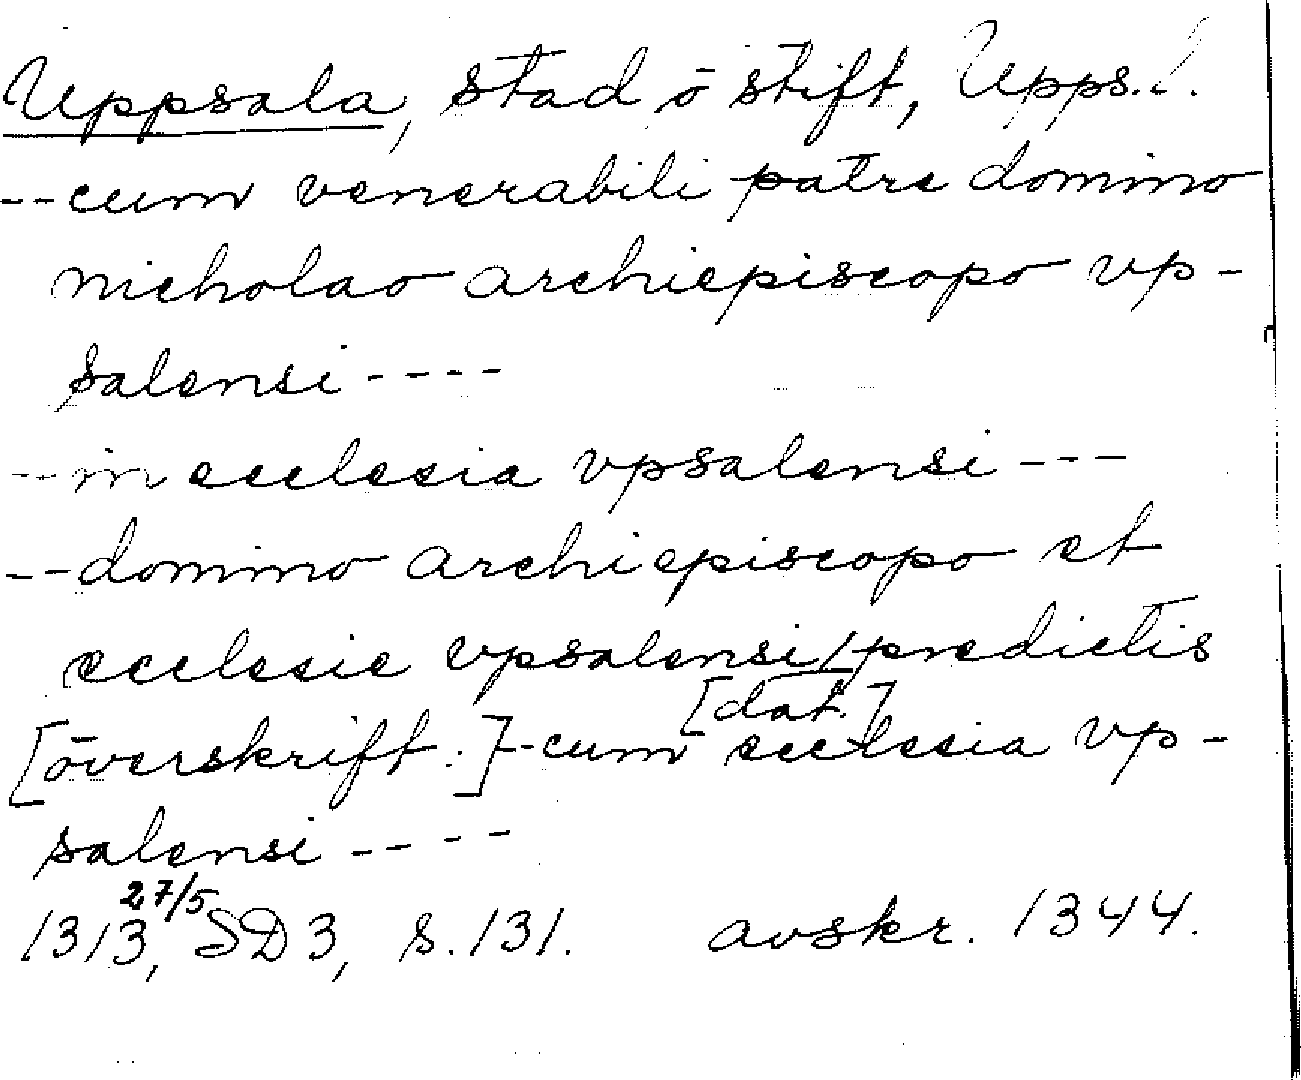 Uppsala, stad o stift, Upps. l.
-- cum venerabili patre domino
nicholao archiepiscopo vp-
salensi ----
-- in ecclesia vpsalensi ---
-- domino archiepiscopo et
ecclesie vpsalensi / predictis
[dat.]
[överskrift.] -- cum ecclesia vp-
salensi ----
27/5
1313, SD 3, s. 131. avskr. 1344.